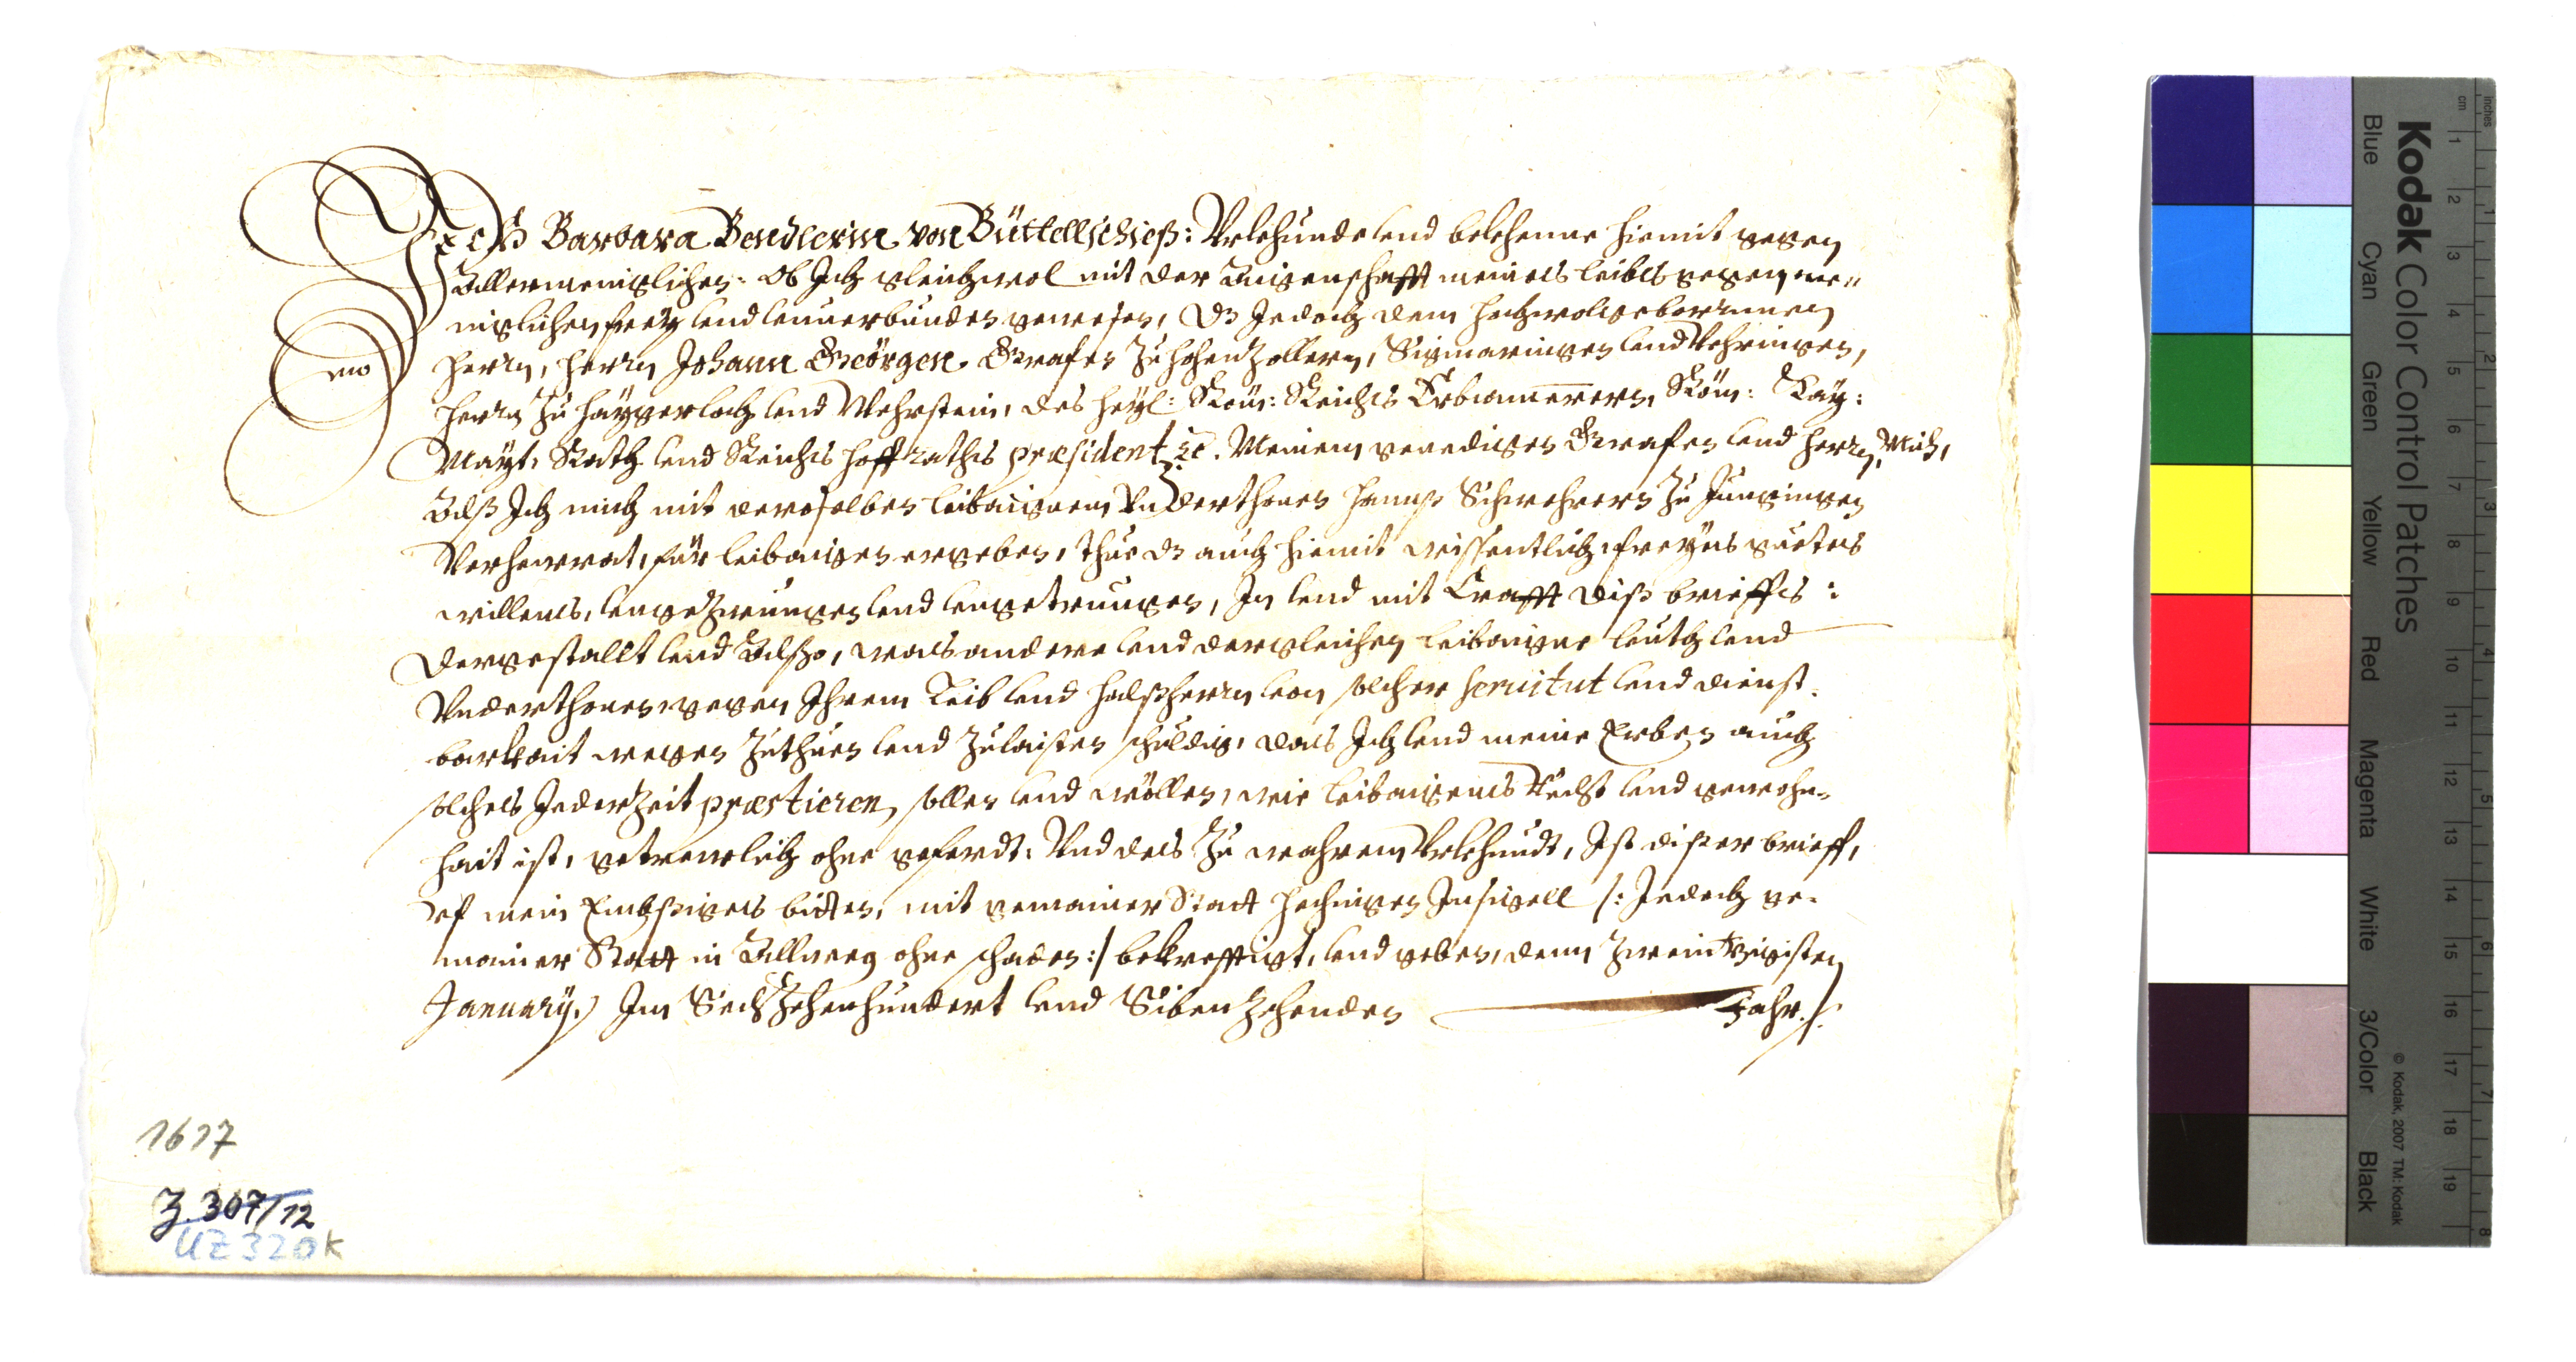 Ich Barbara Bendlerin von Büttellschieß: Vrkhunde vnd bekhenne hiemit gegen
Allermeniglichen: Ob Ich gleichwol mit der Aigenschafft meines leibes gegen me„
niglichen frey vnd vnuerbunden gewesen, Dz Jedoch dem Hochwolgebornnen
Herrn, Herrn Johann Geörgen Grafen zu Hohenzollern, Sigmaringen vnd Vehringen,
Herrn zu Haygerloch vnd Wehrstein, des Heyl: Röm: Reichs Erbcammerern, Röm: Kay:
Mayt. Rath vnd Reichs Hoffraths præsident ꝛc. Meinem genedigen Grafen vnd Herrn, Mich,
Alß Ich mich mit deroselben leibaignem Vnderthonen Hannß Schwehrern zu Jungingen
Verheurat, für leibaigen ergeben, thue dz auch hiemit wissentlich, freyes guetes
willens, vngezwungen vnd vngetrungen, In vnd mit Crafft diß brieffs:
Dergestallt vnd Allßo, was andere vnd dergleichen leibaigne leuth vnd
Vnderthonen gegen Ihrem Leib vnd Halßherrn von solcher seruitut vnd dienst-
barkait wegen zuthuen vnd zulaisten schuldig, das Ich vnd meine Erben auch
solches Jederzeit præstieren, sollen vnd wöllen, wie leibaigens Recht vnd gewohn-
hait ist, getrewlich ohne geferdt. Vnd des zu wahrem Vrkhundt, Ist dißer brieff,
vf mein bitten, mit gemainer Statt Hechingen Insigell /: Jedoch ge-
mainer Statt in Allweg ohne schaden :/ bekrefftigt, vnd geben, denn zweintzigisten
January, Im Sechzehenhundert vnd Sibenzehenden Jahr ./.
1617
Z. 307/12
UZ 320k
Kodak Color Control Patches
Blue Cyan Green Yellow Red Magenta White 3/Color Black
© Kodak, 2007 TM: Kodak
cm 1 2 3 4 5 6 7 8 9 10 11 12 13 14 15 16 17 18 19
inches 1 2 3 4 5 6 7 8